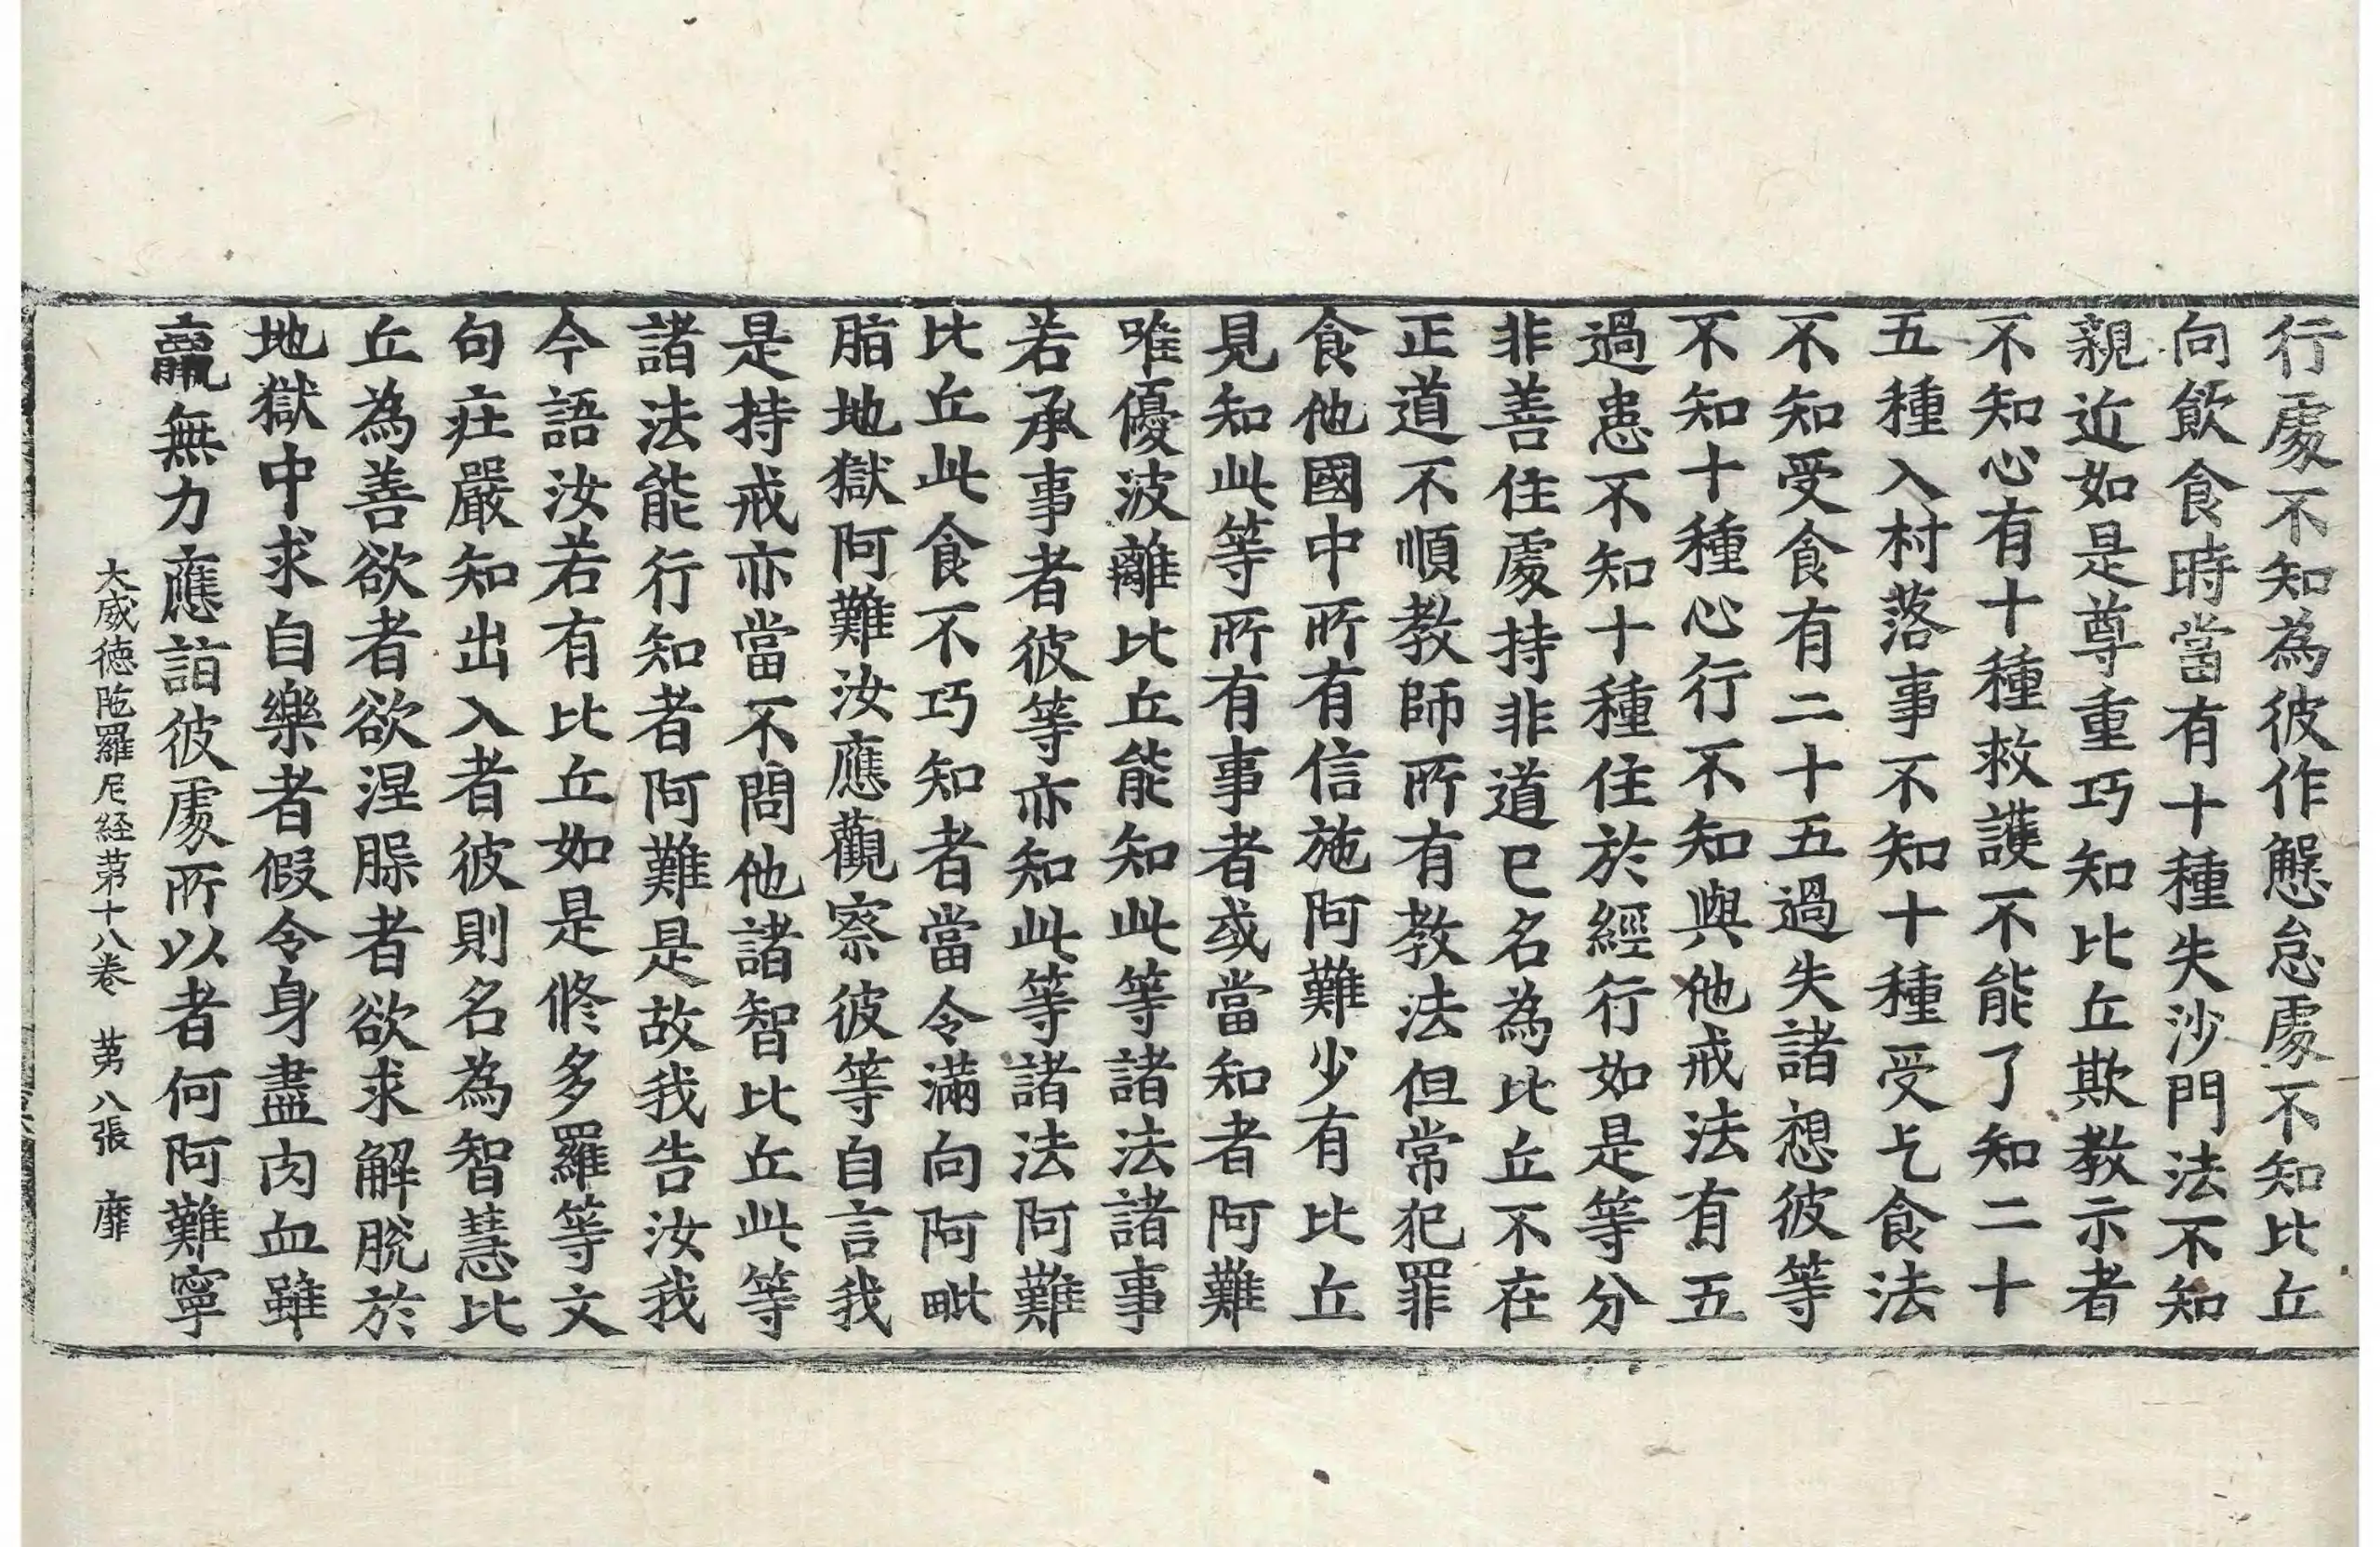 行處不知為彼作懈怠處不知比丘
向飲食時當有十種失沙門法不知
親近如是尊重巧知比丘欺教示者
不知心有十種救護不能了知二十
五種入村落事不知十種受乞食法
不知受食有二十五過失諸想彼等
不知十種心行不知與他戒法有五
過患不知十種住於經行如是等分
非善住處持非道已名為比丘不在
正道不順教師所有教法但常犯罪
食他國中所有信施阿難少有比丘
見知此等所有事者或當知者阿難
唯優波離比丘能知此等諸法諸事
若承事者彼等亦知此等諸法阿難
比丘此食不巧知者當令滿向阿毗
脂地獄阿難汝應觀察彼等自言我
是持戒亦當不問他諸智比丘此等
諸法能行知者阿難是故我告汝我
今語汝若有比丘如是修多羅等文
句莊嚴知出入者彼則名為智慧比
丘為善欲者欲涅槃者欲求解脫於
地獄中求自樂者假令身盡肉血雖
羸無力應詣彼處所以者何阿難寧
大威德陁羅尼経苐十八卷 苐八張 靡